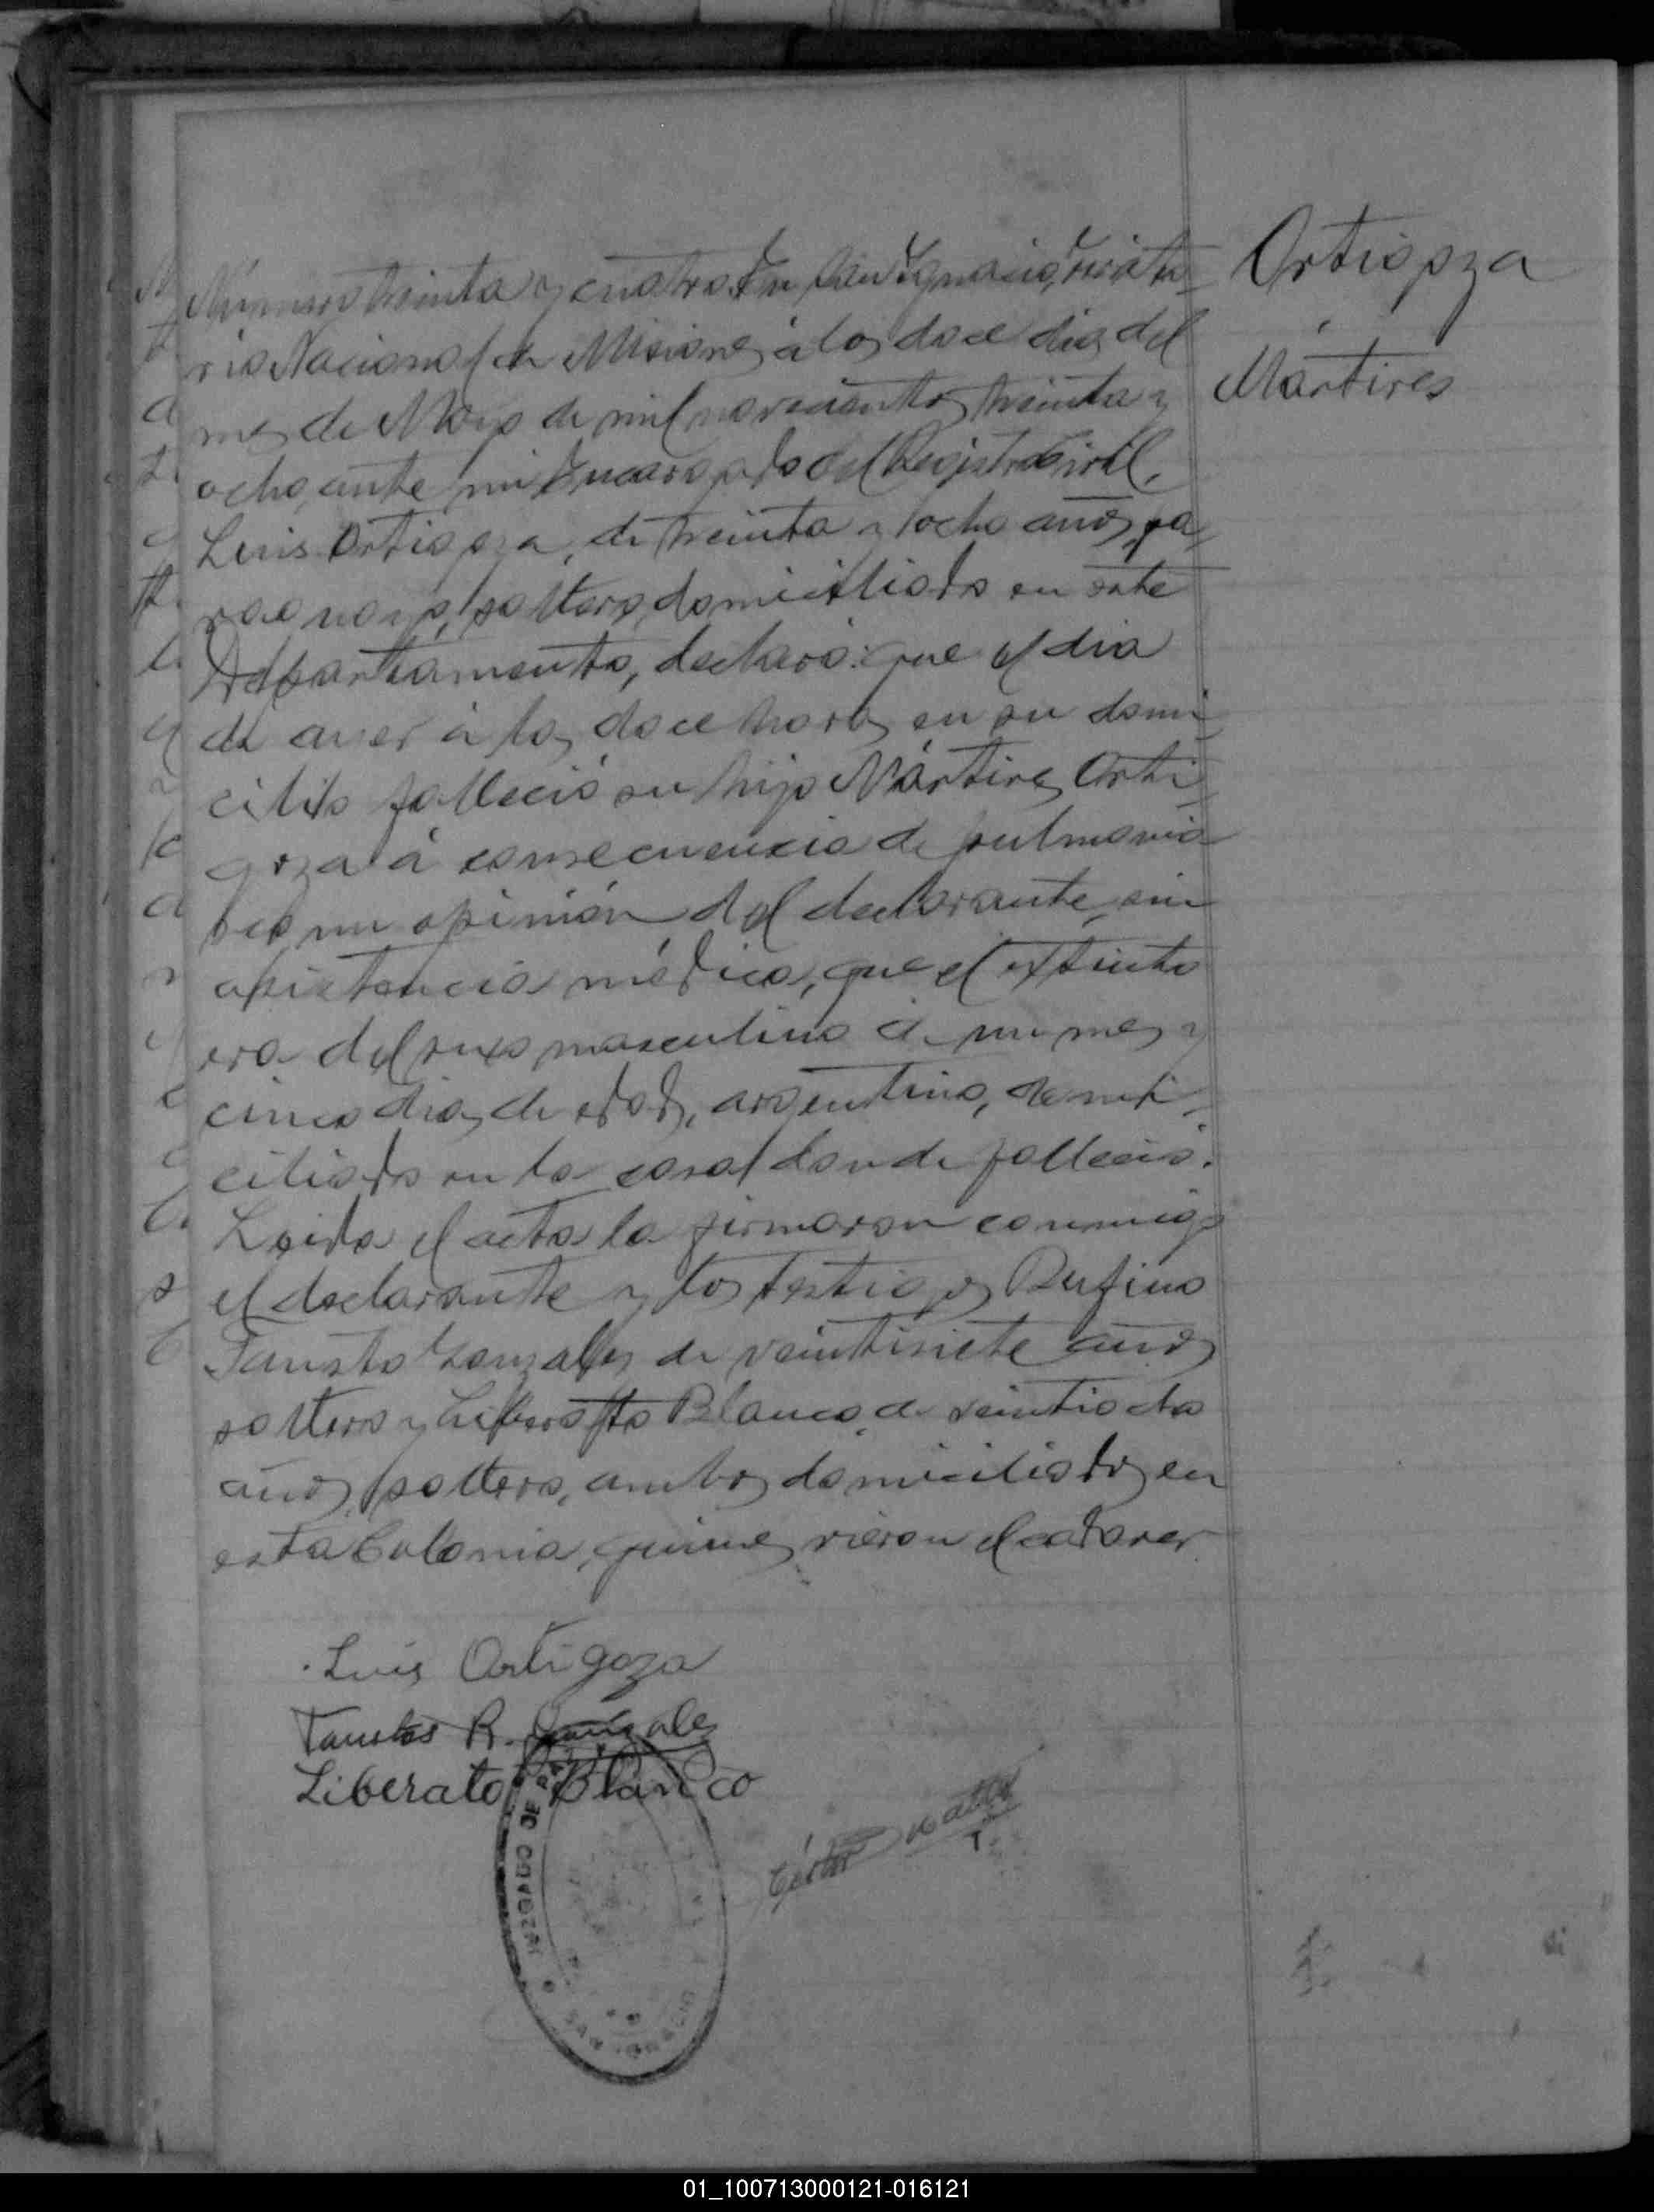 Número treinta y cuatro. En San Ignacio, Territo-
rio Nacional de Misiones, á los doce dias del
mes de Mayo de mil novecientos treinta y
ocho, ante mi Encargado del Registro Civil,
Luis Ortigoza, de treinta y ocho años, pa-
raguayo, soltero, domiciliado en este
Departamento, declaró: que el dia
de ayer á las doce horas en su domi-
cilio falleció su hijo Mártires Orti-
goza á consecuencia de pulmonia
según opinión del declarante, sin
asistencia médica, que el extinto
era del sexo masculino de un mes y
cinco dias de edad, argentino, domi-
ciliado en la casa donde falleció.
Leida el acta la firmaron conmigo
el declarante y los testigos Rufino
Fausto Gonzalez de veintisiete años
soltero y Liberato Blanco, de veintiocho
años, soltero, ambos domiciliados en
esta Colonia, quienes vieron el cadaver
Ortigoza
Mártires
Luis Ortigoza
Fausto R. Gonzalez
Liberato Blanco
JUZGADO DE PAZ
SAN IGNACIO
01_100713000121-016121